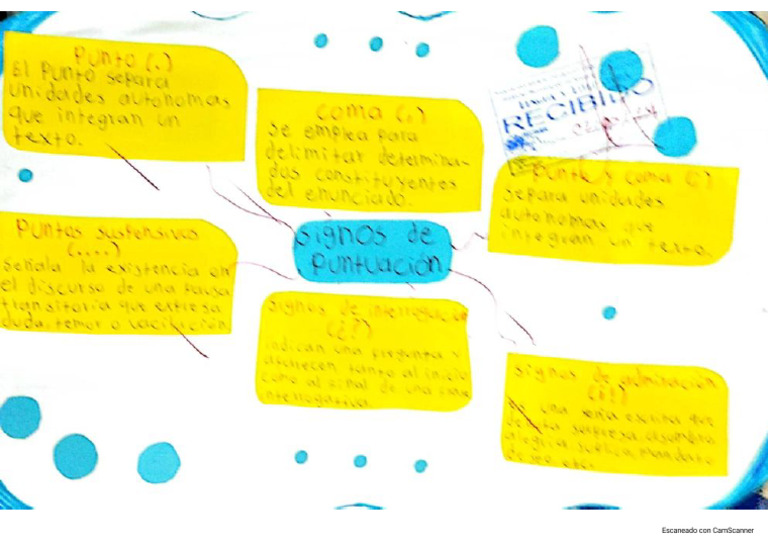 Punto (.)
El Punto separa
unidades autonomas
que integran un
texto.
coma (,)
se emplea para
delimitar determina-
das constituyentes
del enunciado.
RECIBIDO
Punto y coma (;)
separa unidades
autonomas que
integran un texto.
signos de
Puntuación
Puntos suspensivos
(....)
señala la existencia en
el discurso de una pausa
transitoria que expresa
duda, temor o vacilación
signos de interrogación
(¿?)
indican una pregunta y
aparecen tanto al inicio
como al final de una
interrogativa.
signos de admiración
(¡!)
una escrita que
sorpresa, asombro,
alegría, suplica, mandato
deseo, etc.
Escaneado con CamScanner